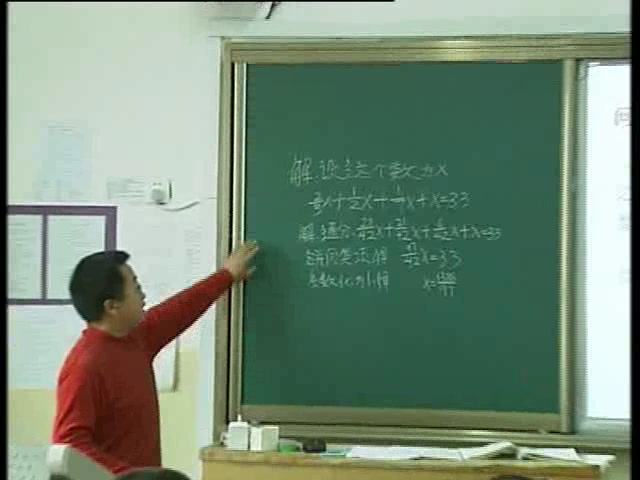 解:设这个数为x
2/3x+1/2x+1/7x+x=33
解:通分,28/42x+21/42x+6/42x+x=33
合并同类项,得 97/42x=33
系数化为1,得 x=1386/97
问